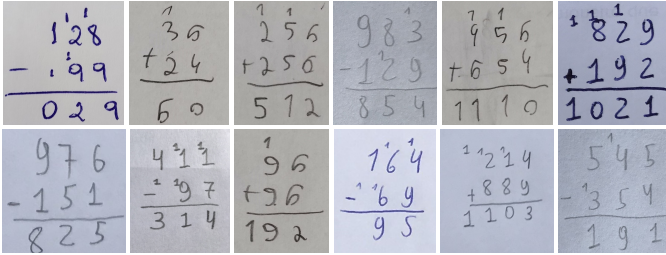 128
- 99
029
36
+ 24
60
256
+ 256
512
983
- 129
854
456
+ 654
1110
829
+ 192
1021
976
- 151
825
411
- 97
314
96
+ 96
192
164
- 69
95
214
+ 889
1103
545
- 354
191